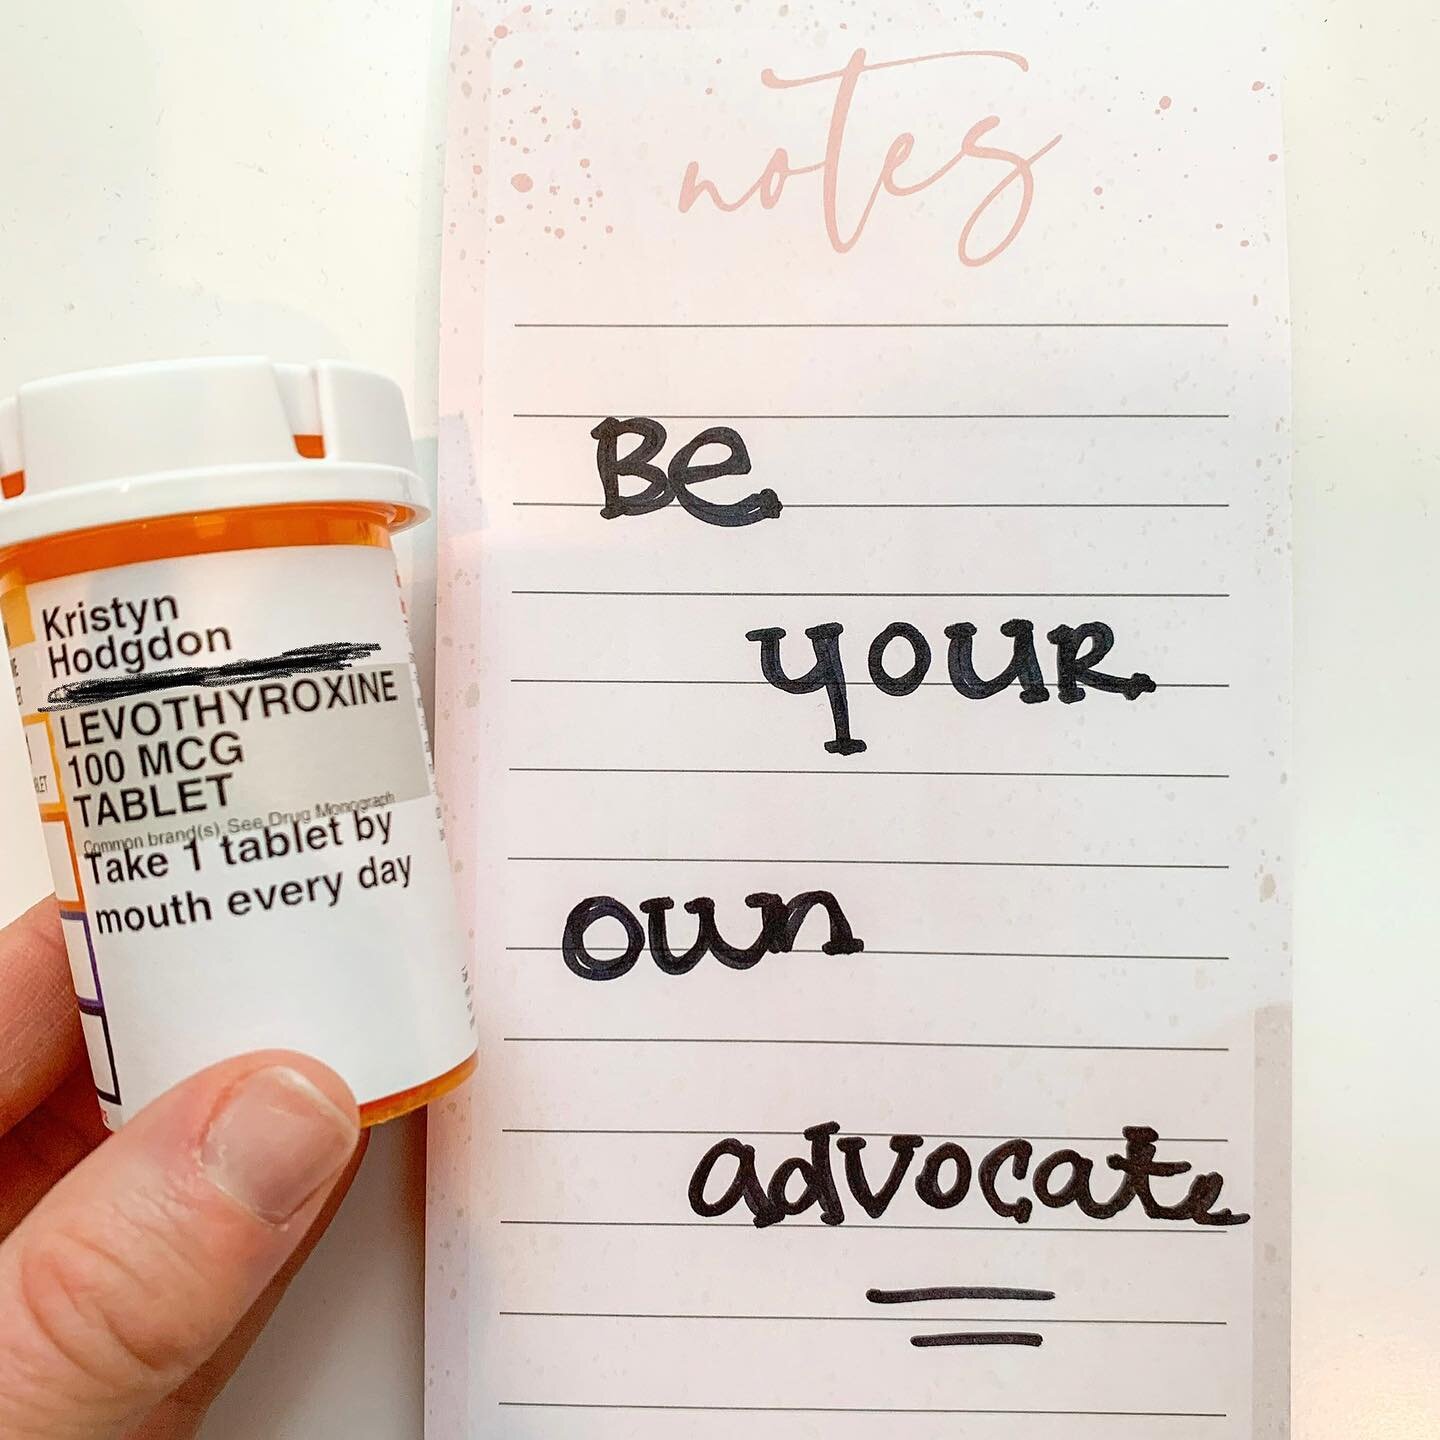 notes
Be
your
own
advocate
Kristyn
Hodgdon
LEVOTHYROXINE
100 MCG
TABLET
Common brand(s): See Drug Monograph
Take 1 tablet by
mouth every day